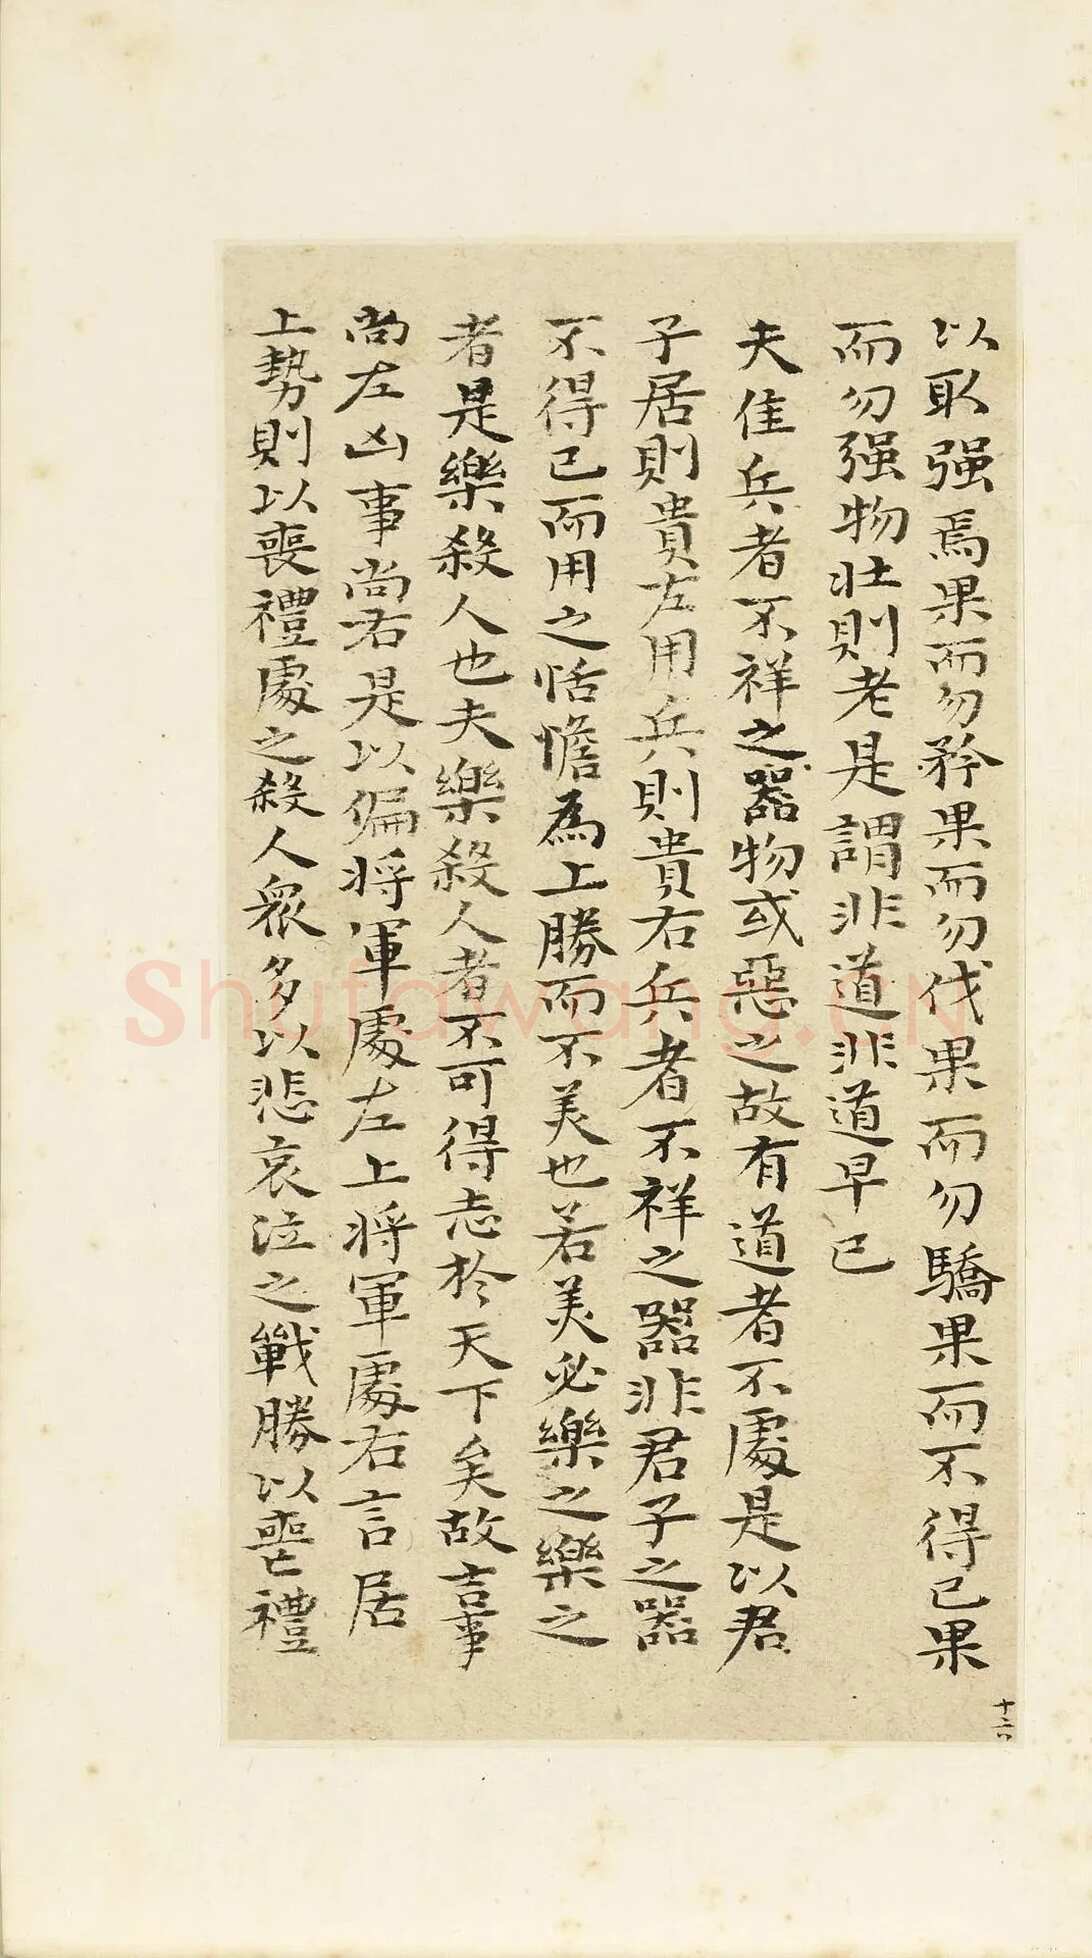 以取强焉果而勿矜果而勿伐果而勿驕果而不得已果
而勿强物壯則老是謂非道非道早已
夫佳兵者不祥之器物或惡之故有道者不處是以君
子居則貴左用兵則貴右兵者不祥之器非君子之器
不得已而用之恬憺為上勝而不美也若美必樂之樂之
者是樂殺人也夫樂殺人者不可得志於天下矣故吉事
尚左凶事尚右是以偏將軍處左上將軍處右言居
上勢則以喪禮處之殺人衆多以悲哀泣之戰勝以喪禮
十六
Shufawang.CN